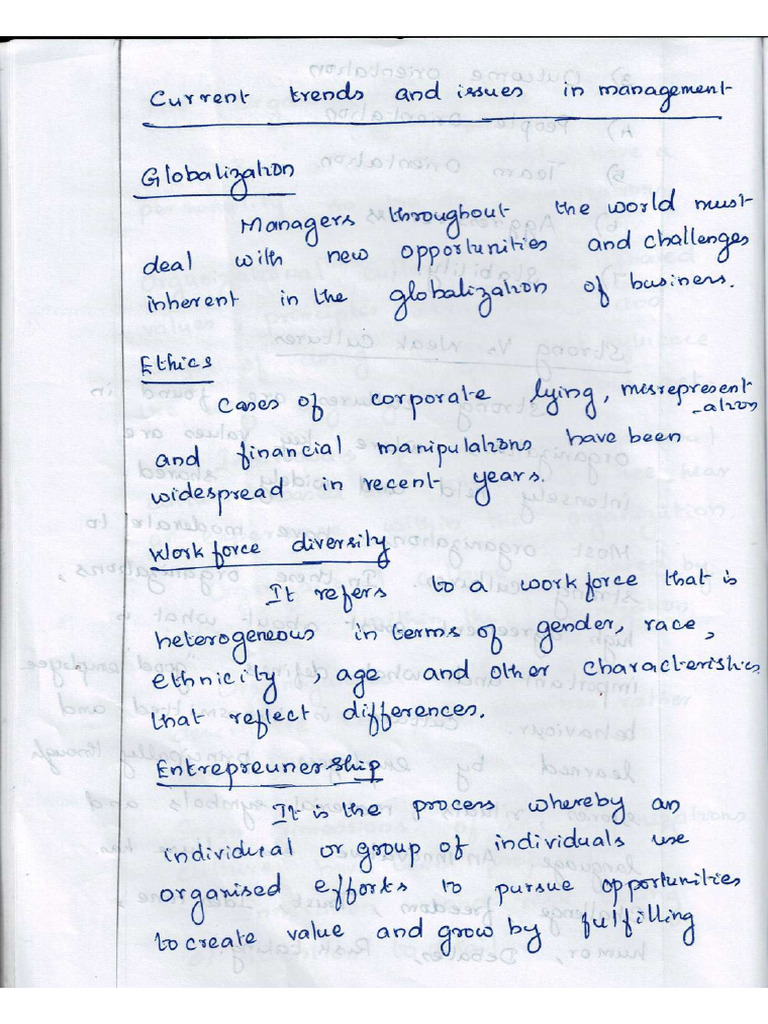 Current trends and issues in management
Globalization
Managers throughout the world must
deal with new opportunities and challenges
inherent in the globalization of business.
Ethics
Cases of corporate lying, misrepresent
-ation
and financial manipulations have been
widespread in recent years.
Work force diversity
It refers to a work force that is
heterogeneous in terms of gender, race,
ethnicity, age and other characteristics
that reflect differences.
Entrepreunership
It is the process whereby an
individual or group of individuals use
organised efforts to pursue opportunities
to create value and grow by fulfilling